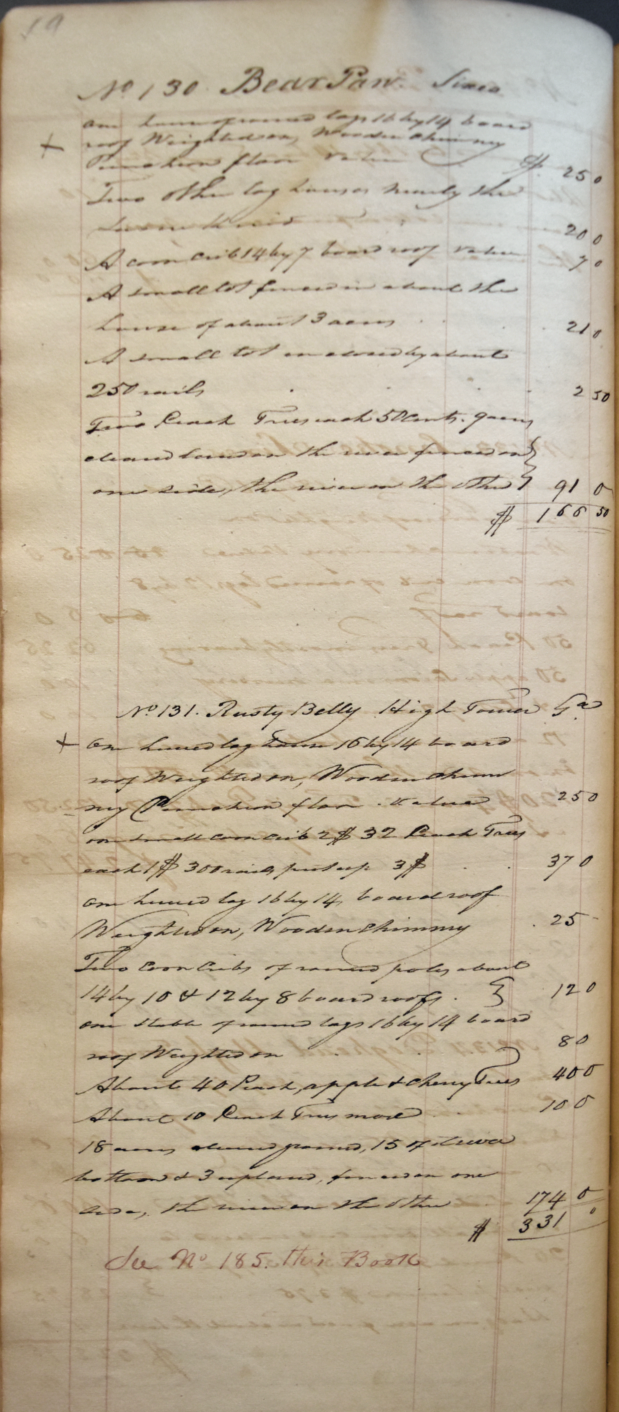 19
No 130 Bear Paw.
one house of round logs 16 by 14 board
roof Weighted on, Wooden Chimney
Puncheon floor value $ 25 0
Two other log houses nearly the
same 20 0
A corn crib 14 by 7 board roof value 7 0
A small lot fenced in about the
house of about 3 acres 21 0
A small lot enclosed by about
250 rails 2 50
Two Peach Trees each 50 cents. 9 acres
cleared land on the river fenced on
one side, the river on the other 91 0
$ 166 50
No 131. Rusty Belly High Tower Ga
+ one hewed log house 16 by 14 board
roof Weighted on, Wooden Chim
ny Puncheon floor valued 25 0
one small corn crib 2$ 32 Peach Trees
each 1$ 300 rails, put up 3$ 37 0
one hewed log 16 by 14, board roof
Weighted on, Wooden Chimney 25
Two corn cribs of round poles about
14 by 10 & 12 by 8 board roofs. 12 0
one stable of round logs 16 by 14 board
roof Weighted on 8 0
About 40 Peach, apple & cherry Trees 40 0
About 10 Peach Trees more 10 0
18 acres cleared ground, 15 of
bottom & 3 upland, fenced on one
side, the river on the other 174 0
$ 331 0
See No 185. this Book